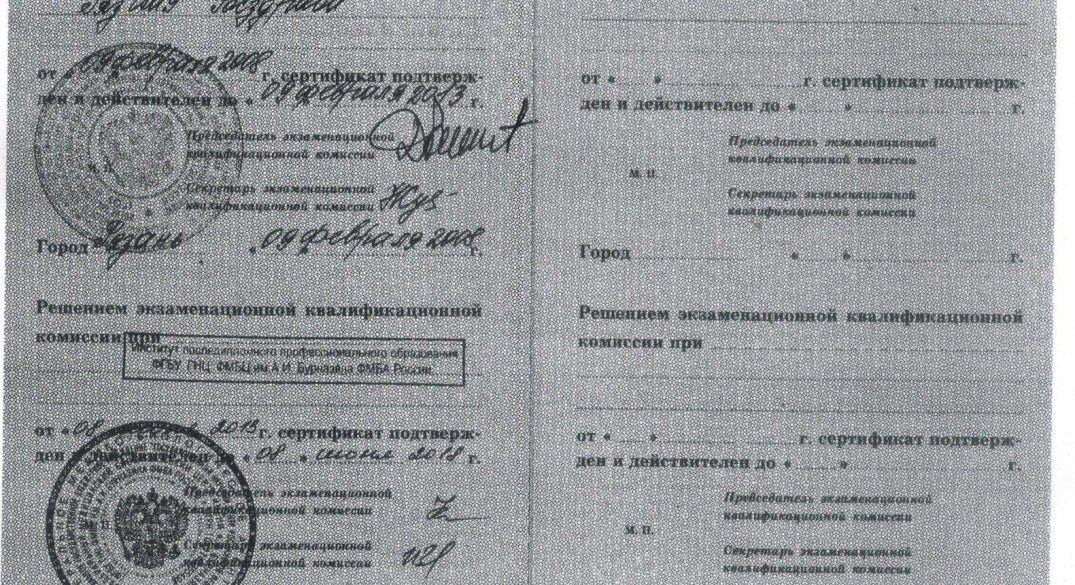 от « 09 » февраля 2008 г. сертификат подтверж-
ден и действителен до « 09 февраля 2013 г.
Председатель экзаменационной
квалификационной комиссии
М. П.
Секретарь экзаменационной
квалификационной комиссии
Город Рязань « 09 февраля 2008 г.
Решением экзаменационной квалификационной
комиссии при
Институт последипломного профессионального образования
ФГБУ ГНЦ ФМБЦ им А.И. Бурназяна ФМБА России
от « 08 2013 г. сертификат подтверж-
ден и действителен до « 08 » июня 2018 г.
Председатель экзаменационной
квалификационной комиссии
М. П.
Секретарь экзаменационной
квалификационной комиссии
от « » г. сертификат подтверж-
ден и действителен до « » г.
Председатель экзаменационной
квалификационной комиссии
М. П.
Секретарь экзаменационной
квалификационной комиссии
Город « » г.
Решением экзаменационной квалификационной
комиссии при
от « » г. сертификат подтверж-
ден и действителен до « » г.
Председатель экзаменационной
квалификационной комиссии
М. П.
Секретарь экзаменационной
квалификационной комиссии